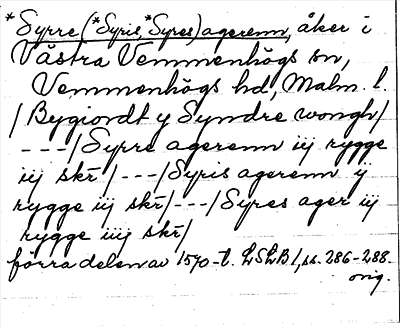 *Syrre (*Syris, *Syres) agerenn, åker i
Västra Vemmenhögs sn,
Vemmenhögs hd, Malm. l.
/ Bygiordt y Syndre wongh /
---/ Syrre agerenn iij rygge
iij skr̄ / ---/ Syris agerenn ij
rygge iij skr̄ / ---/ Syres ager iij
rygge iiij skr̄ /
förra delen av 1570-t. LSLB 1, ss. 286-288.
orig.